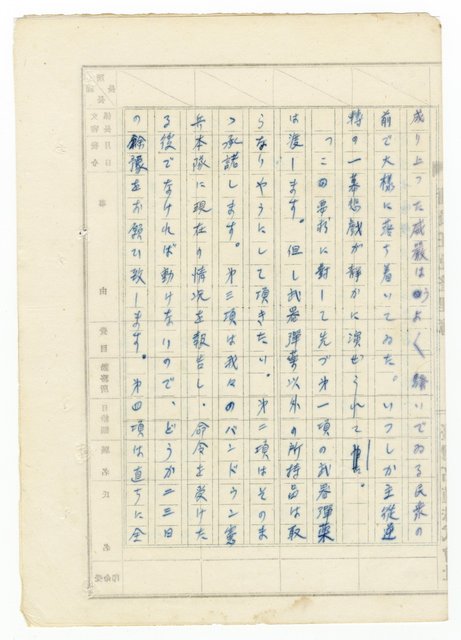 成り上つた威嚴はうよく輝いでゐる民衆の
前で大樣に落ち着いてゐた。いつしか主從逆
轉の一幕悲戲が靜かに演ぜられて
「この要求に對して先づ第一項の武器彈藥
は渡します。但し武器彈藥以外の所持品は取
らないやうにして頂きたい。第二項はそのま
ゝ承諾します。第三項は我々のバンドウン憲
兵本隊に現在の情況を報告し、命令を受けた
る後でなければ動けないので、どうか二三日
の餘裕をお願ひ致します。第四項は直ちに全